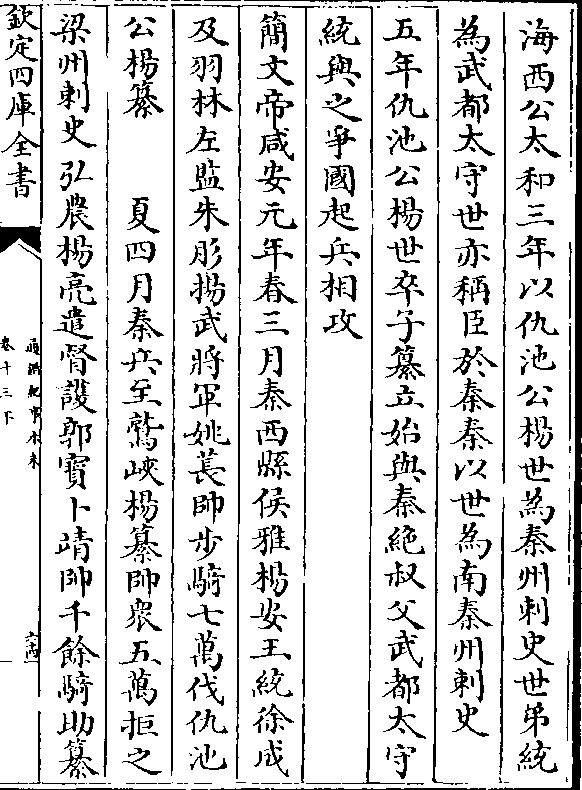 海西公太和三年以仇池公楊世為秦州刺史世弟統
為武都太守世亦稱臣於秦秦以世為南秦州刺史
五年仇池公楊世卒子纂立始與秦絶叔父武都太守
統與之爭國起兵相攻
簡文帝咸安元年春三月秦西縣侯雅楊安王統徐成
及羽林左監朱肜揚武將軍姚萇帥步騎七萬伐仇池
公楊纂　夏四月秦兵至鷲峽楊纂帥衆五萬拒之
梁州刺史弘農楊亮遣督護郭寶卜靖帥千餘騎助纂
欽定四庫全書
通鑑紀事本末
卷十三下